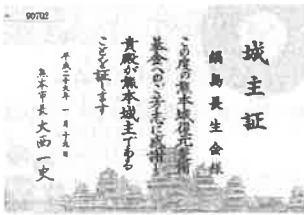 90702
城主証
鍋島長生会様
この度の熊本城復元整備
基金へのご芳志に感謝し
貴殿が熊本城主である
ことを証します
平成二十六年一月十九日
熊本市長大西一史